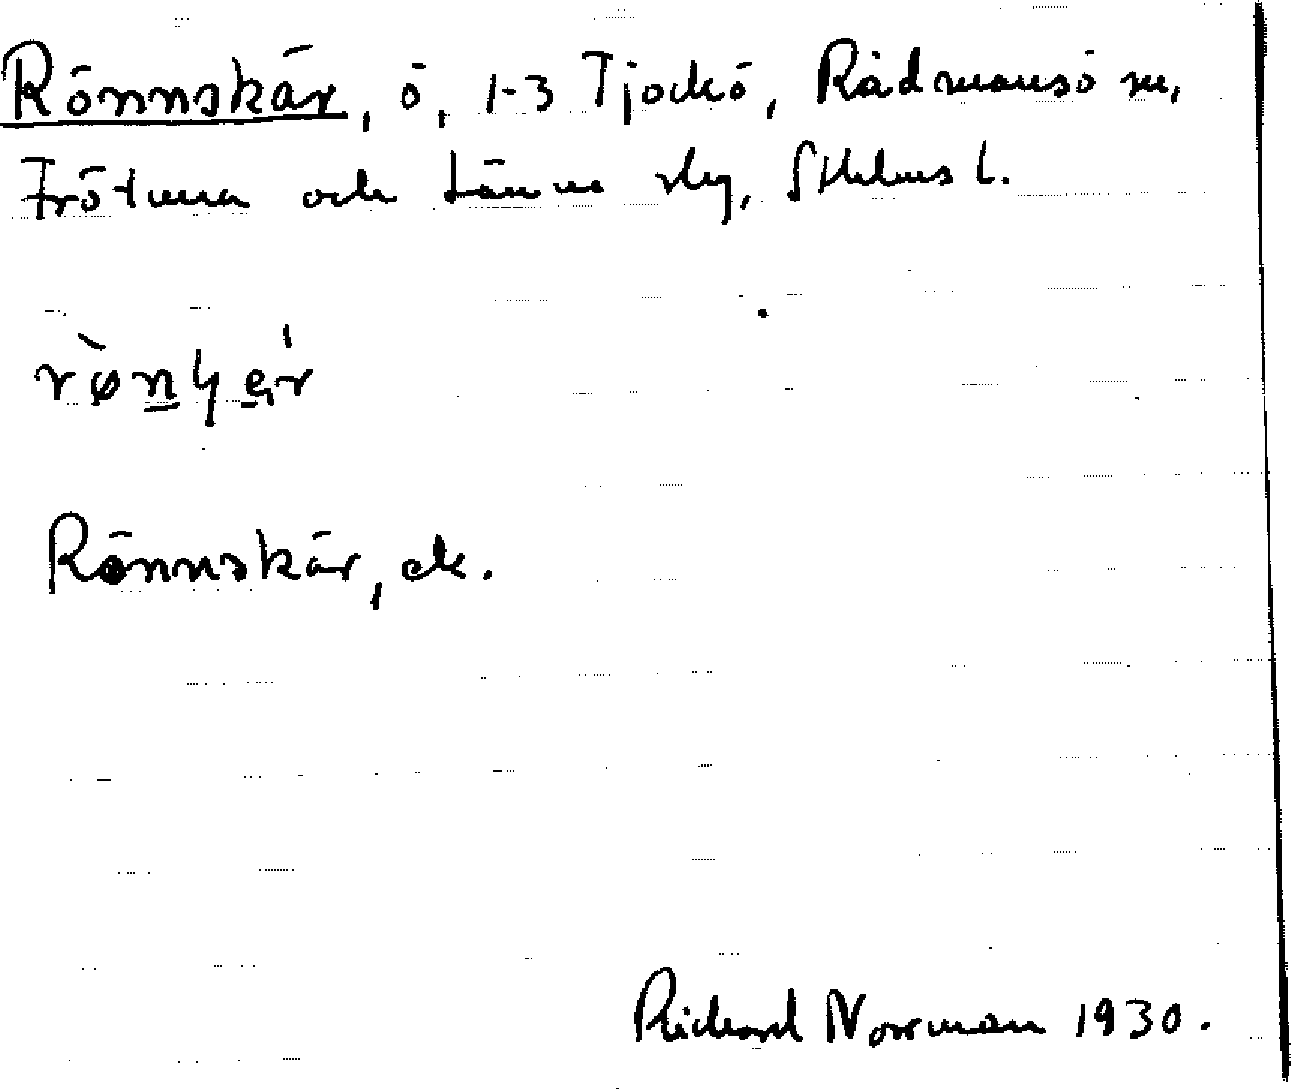 Rönnskär, ö, 1-3 Tjockö, Rådmansö sn,
Frötuna och Länna slg, Sthlms l.
Rönnskär, ek.
Richard Norrman 1930.